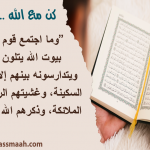 كن مع الله ..
"وما اجتمع قوم
بيوت الله يتلون
ويتدارسونه بينهم إلا
السكينة، وغشيتهم الر
الملائكة، وذكرهم الله
assmaah.com